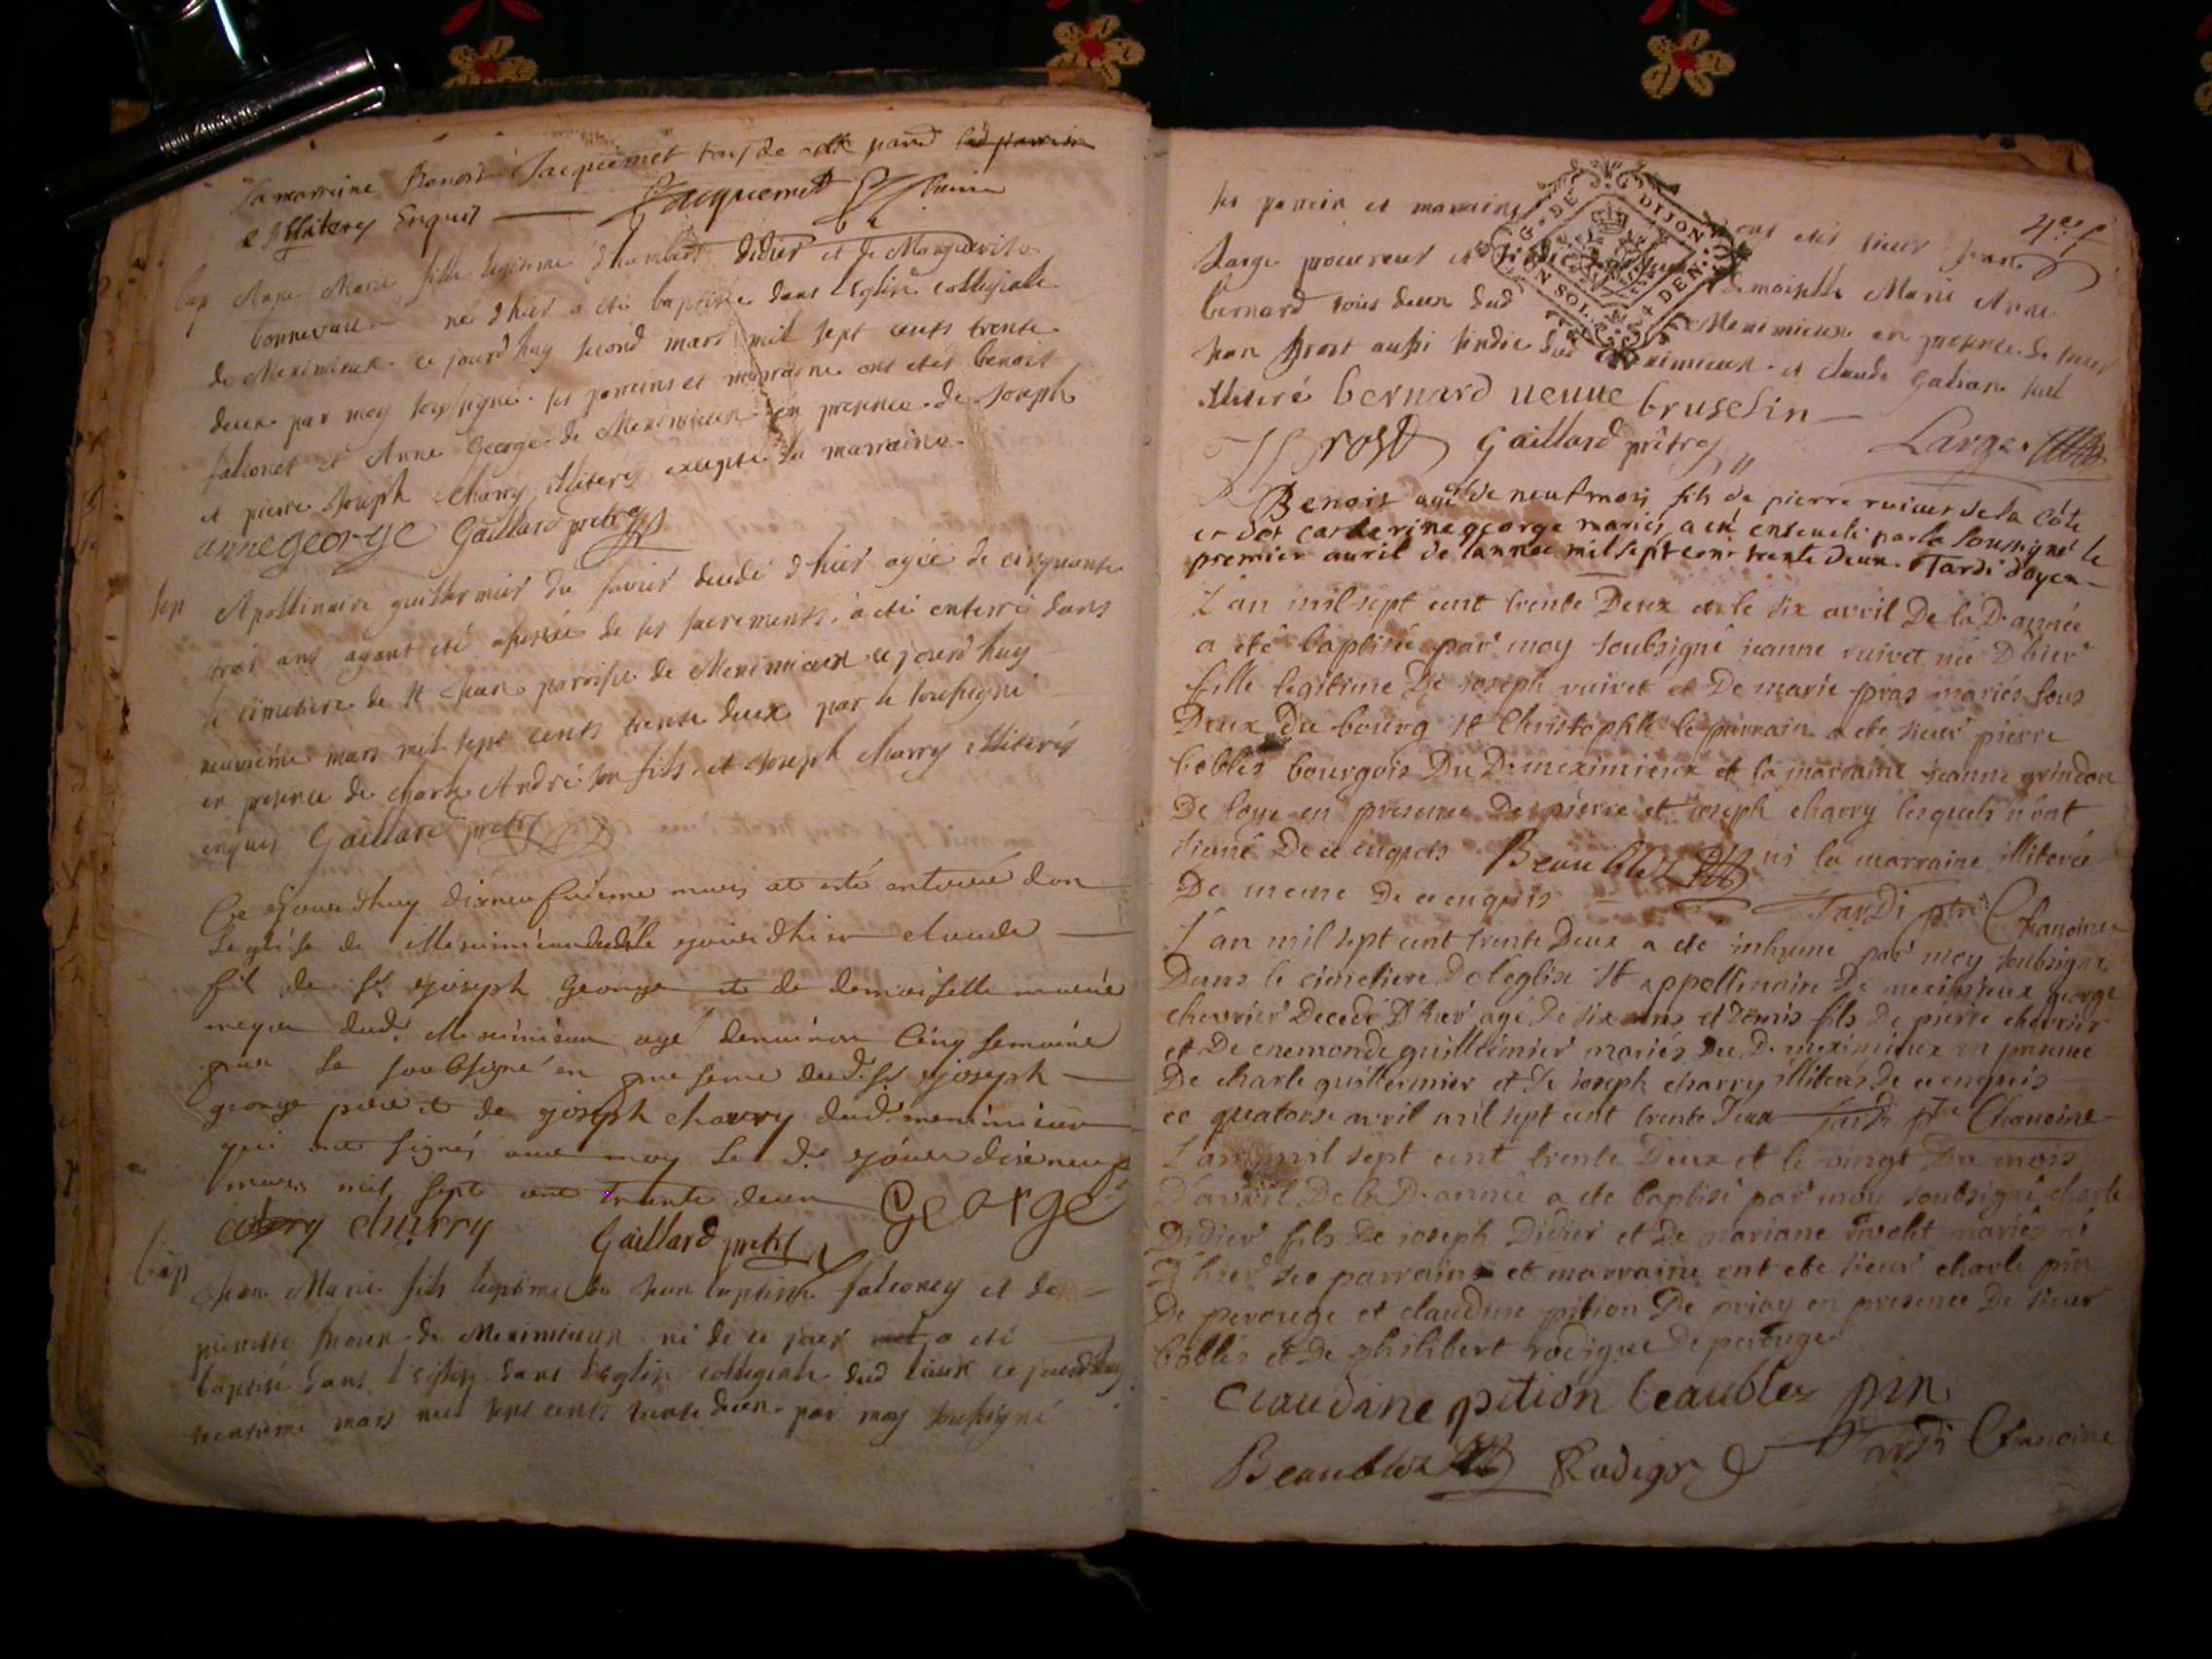 la marraine Benoist Jacquemet tous de cette paroi
illiterez Enquis Jacquemet
bap Anne Marie fille legitime d'humbert didier et de Marguerite
bonnevau né d'hier a été baptisée dans l'Eglise collegiale
de Meximieux ce jourd'huy second mars mil sept cents trente
deux par moy soussigné ses parreins et marraine ont etés benoit
falconet et Anne George de Meximieux en presence de Joseph
et pierre Joseph Charry illiterés excepté la marraine
anne george Gaillard pretre
sep Apollinaire guillermier du favier decedé d'hier agée de cinquante
trois ans ayant été de ses sacrements, a été enterré dans
le cimetiere de St Jean parroisse de Meximieux ce jourd'huy
neuvieme mars mil sept cents trente deux par le soussigné
en presence de charle André son fils et Joseph charry illiterés
enquis Gaillard pretre
Ce ejourdhuy dixneufvieme mars at esté enterré dan
Leglise de Meximieux decedé le ejourdhier claude
fil de sr ejoseph George et de demoiselle marie
dud. Meximieux agé denviron Cinq semaine
par le soubsigné en presence dud. sr ejoseph
george pere et de ejoseph charry dud. meximieux
qui ont signés avec moy le d. ejour dixneuf
mars mil sept cent trante deux George
charry Gaillard pretre
bap Jean Marie fils legitime de Jean baptiste falconey et de
pierrette de Meximieux né de ce jour a été
baptisé dans l'eglise dans l'eglise collegiale dud lieux ce jourd'huy
trentieme mars mil sept cents trente deux par moy soussigné
ses parrein et marraine ont etés sieur Jean
Large procureur et demoiselle Marie Anne
bernard tous deux dud Meximieux en presence de sieur
Jean Brost aussi sindic dud Meximieux et claude galian seul
illiteré bernard veuue bruselin
Brost Gaillard prêtre Large
G. DE DIJON
Benoit agé de neuf mois, fils de pierre ruivet de la côte
et de catherine george mariés, a eté enseveli par le soussigné le
premier auril de lannee mil sept cent trente deux. Tardi doyen
L'an mil sept cent trente Deux et le six avril De la D. année
a été baptisée par moy soubsigné jeanne ruivet née D'hier
fille legitime De joseph ruivet et De marie pras mariés tous
Deux Du bourg St Christophle le parrain a ete sieur pierre
bobles bourgois Du D. meximieux et la marraine jeanne grindon
De loye en presence De pierre et joseph charry lesquels n'ont
signé De ce enquis Beaublez ni la marraine illiterée
De meme De ce enquis Tardi ptre Chanoine
L'an mil sept cent trente Deux a eté inhumé par moy soubsigné
Dans le cimetiere De l'eglise St appollinaire De meximieux george
chevrier Decedé D'hier agé De six ans et Demis fils De pierre chevrier
et De enemonde guillermier mariés Du D. meximieux en presence
De charle guillermier et De joseph charry illiterés de ce enquis
ce quatorse avril mil sept cent trente Deux Tardi ptre Chanoine
L'an mil sept cent trente Deux et le vingt Du mois
D'avril De la D. année a ete baptisé par moy soubsigné charle
Didier fils De joseph Didier et De mariane rivolet mariés né
D'hier ses parrains et marraine ont ete sieur charle pin
De perouge et claudine pition De priay en presence De sieur
bobles et De philibert rodigue De perouge
Claudine pition beaublez pin
Beaublez Rodigue Tardi Chanoine